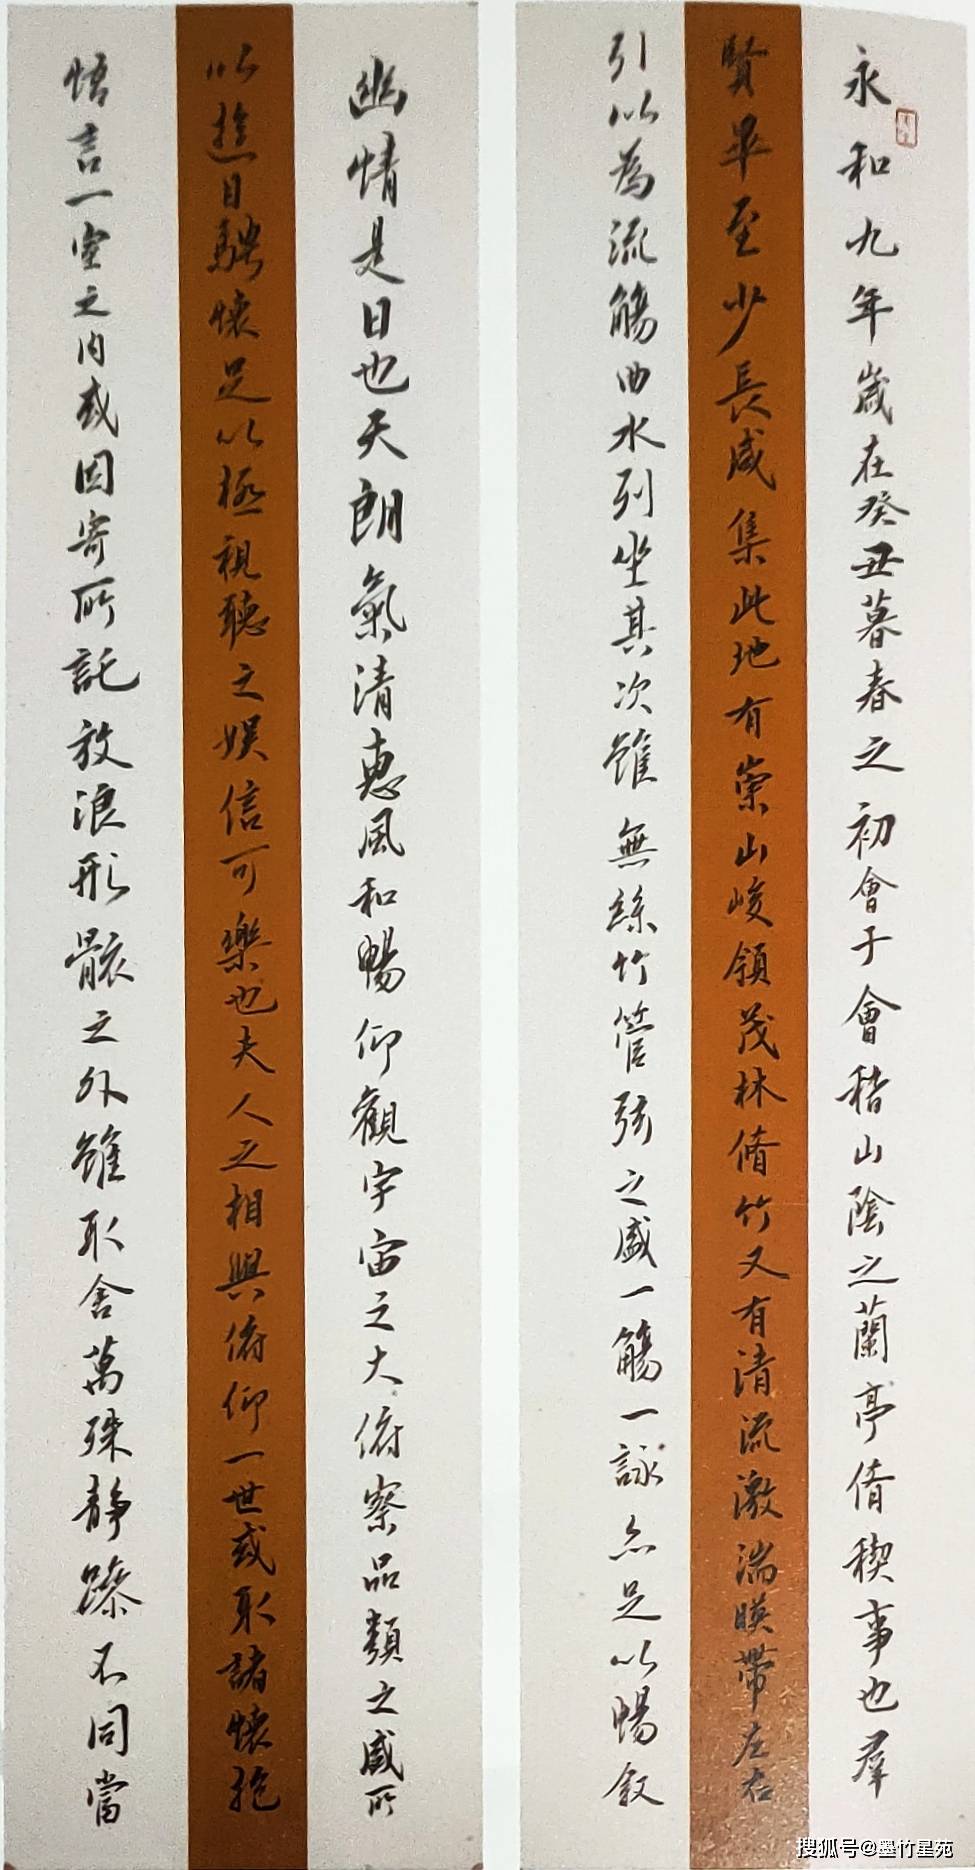 永和九年歲在癸丑暮春之初會于會稽山陰之蘭亭脩稧事也羣
賢畢至少長咸集此地有崇山峻領茂林脩竹又有清流激湍暎帶左右
引以為流觴曲水列坐其次雖無絲竹管弦之盛一觴一詠亦足以暢敘
幽情是日也天朗氣清惠風和暢仰觀宇宙之大俯察品類之盛所
以遊目騁懷足以極視聽之娛信可樂也夫人之相與俯仰一世或取諸懷抱
悟言一室之內或因寄所託放浪形骸之外雖取舍萬殊靜躁不同當
搜狐号@墨竹星苑